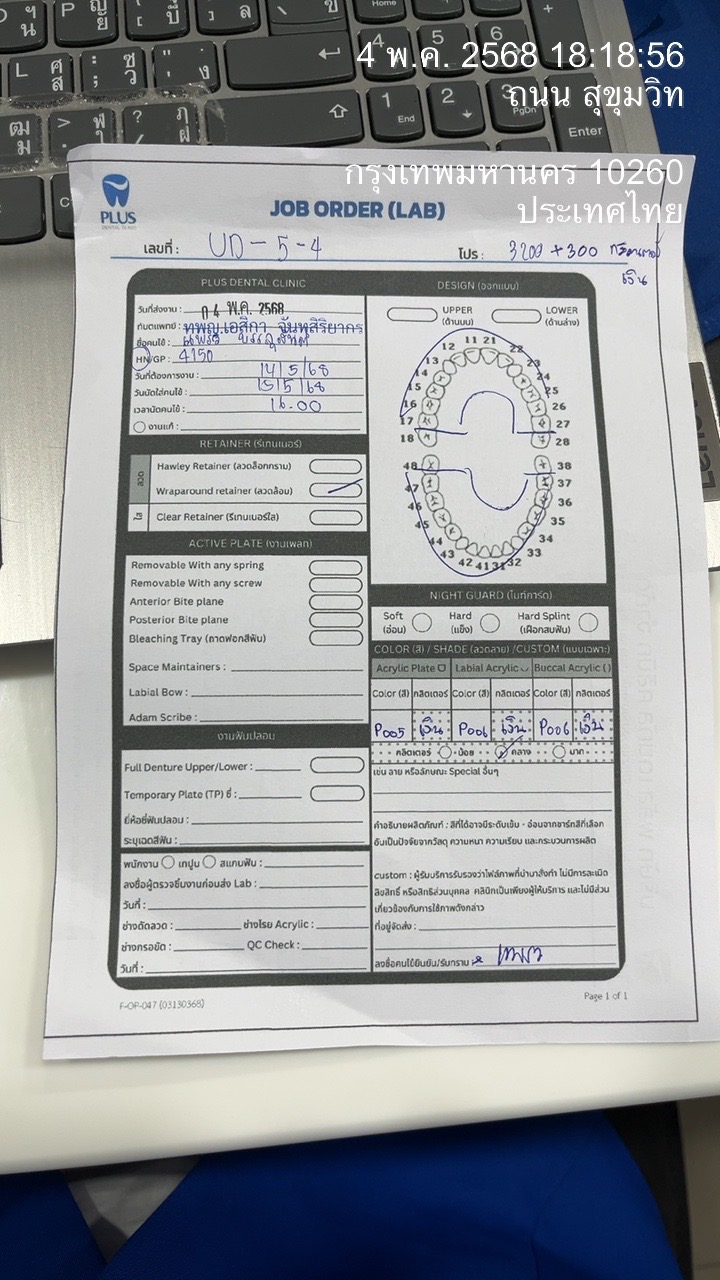 4 พ.ค. 2568 18:18:56
ถนน สุขุมวิท
กรุงเทพมหานคร 10260
ประเทศไทย
PLUS
DENTAL CLINIC
JOB ORDER (LAB)
เลขที่ : UD-5-4
โปร : 3200 + 300
เงิน
PLUS DENTAL CLINIC
วันที่ส่งงาน : 0 4 พ.ค. 2568
ทันตแพทย์ : ทพญ.เอสิกา จันทุสิริยากร
ชื่อคนไข้ :
HN/GP : 4150
วันที่ต้องการงาน : 14/5/68
วันนัดใส่คนไข้ : 15/5/68
เวลานัดคนไข้ : 16.00
งานแก้ :
RETAINER (รีเทนเนอร์)
ลวด
Hawley Retainer (ลวดล็อกกราม)
Wraparound retainer (ลวดล้อม)
ใส
Clear Retainer (รีเทนเนอร์ใส)
ACTIVE PLATE (งานเพลท)
Removable With any spring
Removable With any screw
Anterior Bite plane
Posterior Bite plane
Bleaching Tray (ถาดฟอกสีฟัน)
Space Maintainers :
Labial Bow :
Adam Scribe :
งานฟันปลอม
Full Denture Upper/Lower :
Temporary Plate (TP) ซี่ :
ยี่ห้อซี่ฟันปลอม :
ระบุเฉดสีฟัน :
พนักงาน เทปูน สแกนฟัน :
ลงชื่อผู้ตรวจชิ้นงานก่อนส่ง Lab :
วันที่ :
ช่างดัดลวด : ช่างโรย Acrylic :
ช่างกรอขัด : QC Check :
วันที่ :
DESIGN (ออกแบบ)
UPPER
(ด้านบน)
LOWER
(ด้านล่าง)
11 21
12 22
13 23
14 24
15 25
16 26
17 27
18 28
48 38
47 37
46 36
45 35
44 34
43 33
42 41 31 32
NIGHT GUARD (ไนท์การ์ด)
Soft
(อ่อน)
Hard
(แข็ง)
Hard Splint
(เฝือกสบฟัน)
COLOR (สี) / SHADE (ลวดลาย) /CUSTOM (แบบเฉพาะ)
Acrylic Plate Labial Acrylic Buccal Acrylic ( )
Color (สี) กลิตเตอร์ Color (สี) กลิตเตอร์ Color (สี) กลิตเตอร์
P005 เงิน P006 เงิน P006 เงิน
กลิตเตอร์ น้อย กลาง มาก
เช่น ลาย หรือลักษณะ Special อื่นๆ
คำอธิบายผลิตภัณฑ์ : สีที่ได้อาจมีระดับเข้ม - อ่อนจากชาร์ทสีที่เลือก
อันเป็นปัจจัยจากวัสดุ ความหนา ความเรียบ และกระบวนการผลิต
custom : ผู้รับบริการรับรองว่าไฟล์ภาพที่นำมาสั่งทำ ไม่มีการละเมิด
ลิขสิทธิ์ หรือสิทธิส่วนบุคคล คลินิกเป็นเพียงผู้ให้บริการ และไม่มีส่วน
เกี่ยวข้องกับการใช้ภาพดังกล่าว
ที่อยู่จัดส่ง :
ลงชื่อคนไข้ยืนยัน/รับทราบ
F-OP-047 (03130368)
Page 1 of 1